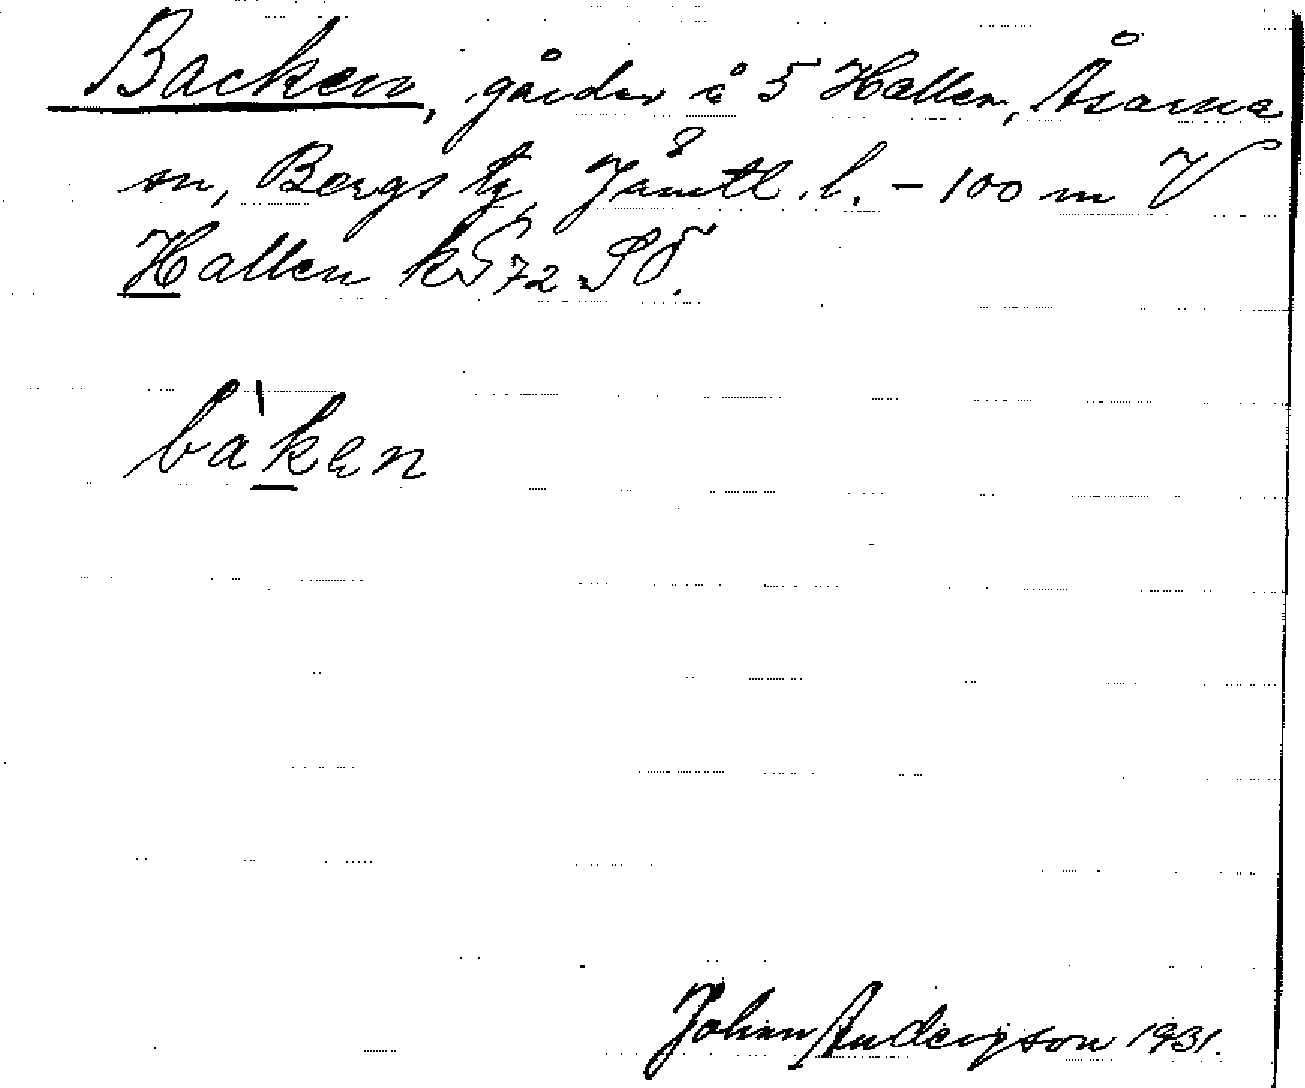 Backen, gårdar å 5 Hallen, Åsarne
sn, Bergs tg, Jämtl. l. – 100 m V
Hallen kS 72 SV.
bàken
Johan Anderson 1931.